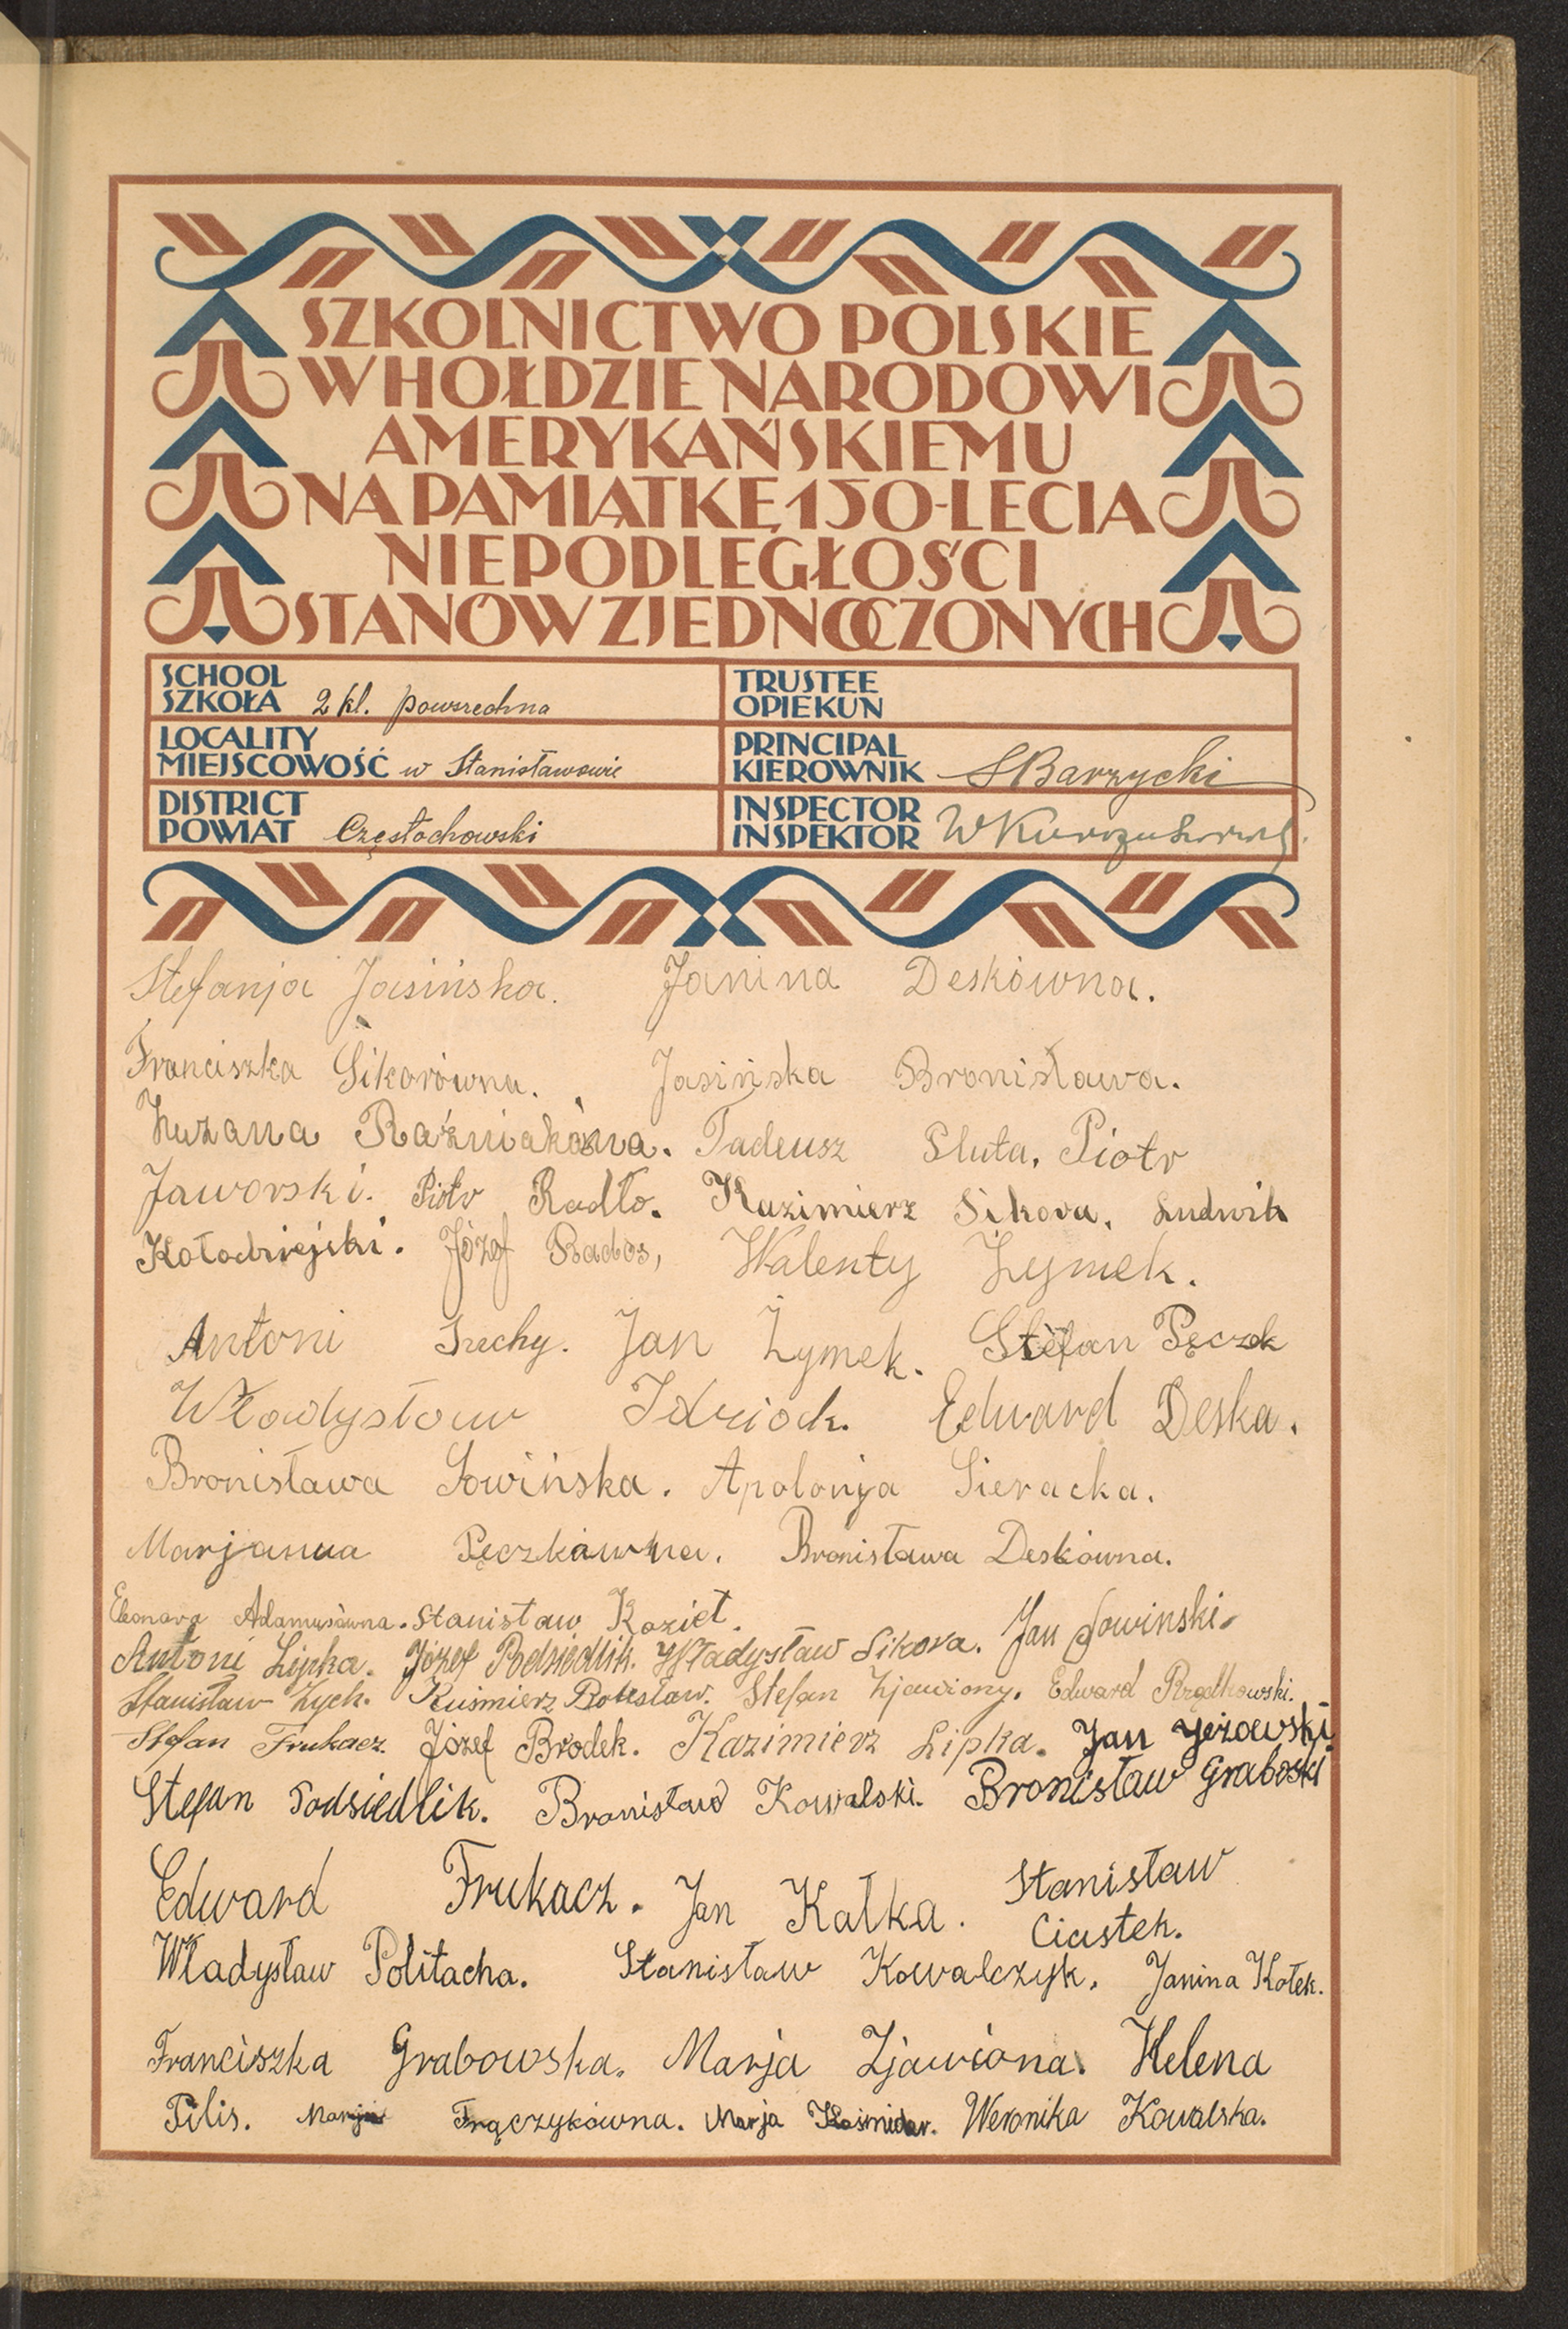 SZKOLNICTWO POLSKIE
W HOŁDZIE NARODOWI
AMERYKAŃSKIEMU
NA PAMIĄTKĘ 150-LECIA
NIEPODLEGŁOŚCI
STANÓW ZJEDNOCZONYCH
SCHOOL
SZKOŁA 2 kl. powszechna
TRUSTEE
OPIEKUN
LOCALITY
MIEJSCOWOŚĆ w Stanisławowie
PRINCIPAL
KIEROWNIK SBarzycki
DISTRICT
POWIAT Częstochowski
INSPECTOR
INSPEKTOR
Stefanja Jasińska. Janina Deskówna.
Franciszka Sikorówna. Jasińska Bronisława.
Zuzana Raźniakówna. Tadeusz Sluta. Piotr
Jaworski. Piotr Radło. Kazimierz Sikora. Ludwik
Kołodziejski. Józef Rados, Walenty Żymek.
Antoni Suchy. Jan Żymek. Stefan Pęczek
Władysław Idziak. Edward Deska.
Bronisława Sowińska. Apolonja Sieracka.
Marjanna Pęczkówna. Bronisława Deskówna.
Eleonora Adamusówna. Stanisław Kozieł. Jan Sowinski.
Antoni Lipka. Józef Podsiedlik. Władysław Sikora.
Stanisław Zych. Kuśmierz Bolesław. Stefan Zjawiony. Edward Rządkowski.
Stefan Frukacz. Józef Brodek. Kazimierz Lipka. Jan Jeżowski.
Stefan Podsiedlik. Bronisław Kowalski. Bronisław Graboski
Edward Frukacz. Jan Kałka. Stanisław
Ciastek.
Władysław Politacha. Stanisław Kowalczyk. Janina Kołek.
Franciszka Grabowska. Marja Zjawiona. Helena
Pilis. Marja Frączykówna. Marja Weronika Kowalska.